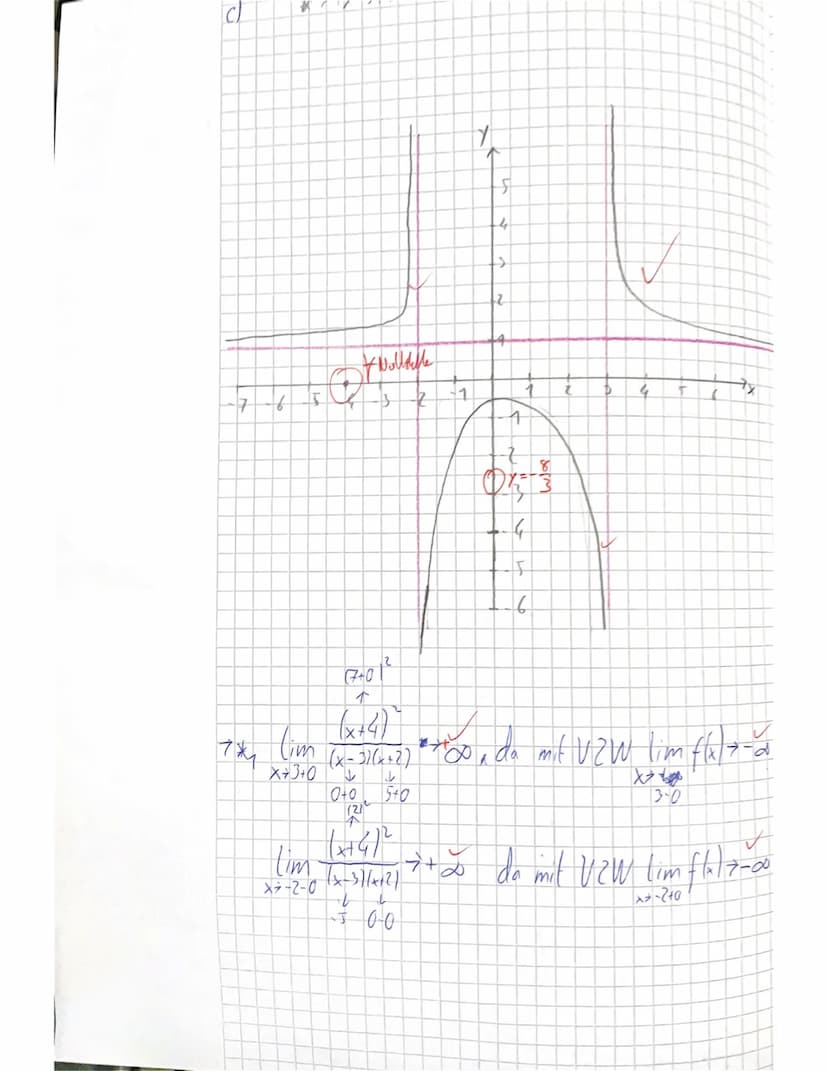 c)
y
5
4
3
2
1
Nullstelle
-7 -6 -5 -4 -3 -2 -1 1 2 3 4 5 6 x
-1
-2
y=-8/3
-3
-4
-5
-6
(7+0)²
↑
lim (x+4)²/(x-3)(x+2) → +∞, da mit VZW lim f(x) → -∞
x→3+0 ↓ ↓ x→
0+0 5+0 3-0
(2)²
↑
lim (x+4)²/(x-3)(x+2) → +∞ da mit VZW lim f(x) → -∞
x→-2-0 ↓ ↓ x→-2+0
-5 0-0